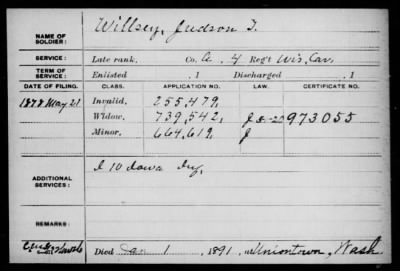 NAME OF SOLDIER: Willsey, Judson T.
SERVICE: Late rank, Co. A. 4 Reg't Wis. Cav.
TERM OF SERVICE: Enlisted , 1 Discharged , 1
DATE OF FILING. CLASS. APPLICATION NO. LAW. CERTIFICATE NO.
1878 May 21 Invalid, 255,479,
Widow, 739,542, 973055
Minor, 664,619, J
ADDITIONAL SERVICES: I 10 Iowa Inf.
REMARKS:
Died Jan 1 1891, at Uniontown, Wash